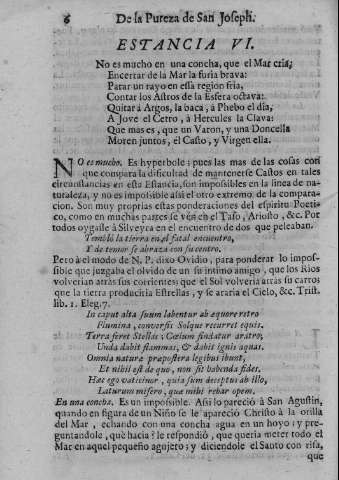 6 De la Pureza de San Joseph.
ESTANCIA VI.
No es mucho en una concha, que el Mar cria;
Encerrar de la Mar la furia brava:
Parar un rayo en essa region fria,
Contar los Astros de la Esfera octava:
Quitar à Argos, la baca, à Phebo el dia,
A Jove el Cetro, à Hercules la Clava:
Que mas es, que un Varon, y una Doncella
Moren juntos, el Casto, y Virgen ella.
NO es mucho. Es hyperbole: pues las mas de las cosas con
que compara la dificultad de mantenerse Castos en tales
circunstancias en esta Estancia, son impossibles en la linea de na-
turaleza, y no es impossible assi el otro extremo de la compara-
cion. Son muy proprias estas ponderaciones del espiritu Poeti-
co, como en muchas partes se vèn en el Taso, Ariosto, &c. Por
todos oygasse à Silveyra en el encuentro de dos que peleaban.
Temblò la tierra en el fatal encuentro,
Y de temor se abraza con su centro.
Pero à el modo de N. P. dixo Ovidio, para ponderar lo impos-
sible que juzgaba el olvido de un su intimo amigo, que los Rios
volverian atràs sus corrientes: que el Sol volveria atràs su carros
que la tierra produciria Estrellas, y se araria el Cielo, &c. Trist.
lib. 1. Eleg. 7.
In caput alta suum labentur ab æquore retro
Flumina, conversis Solque recurret equis.
Terra feret Stellas; Cœlum findatur aratro,
Unda dabit flammas, & dabit ignis aquas.
Omnia naturæ præpostera legibus ibunt,
Et nihil est de quo, non sit habenda fides.
Hæc ego vaticinor, quia sum deceptus ab illo,
Laturum misero, quæ mihi rebar opem.
En una concha. Es un impossible. Assi lo pareciò à San Agustin,
quando en figura de un Niño se le apareciò Christo à la orilla
del Mar, echando con una concha agua en un hoyo; y pre-
guntandole, què hacia? le respondiò, que queria meter todo el
Mar en aquel pequeño agujero; y diciendole el Santo con risa,
que